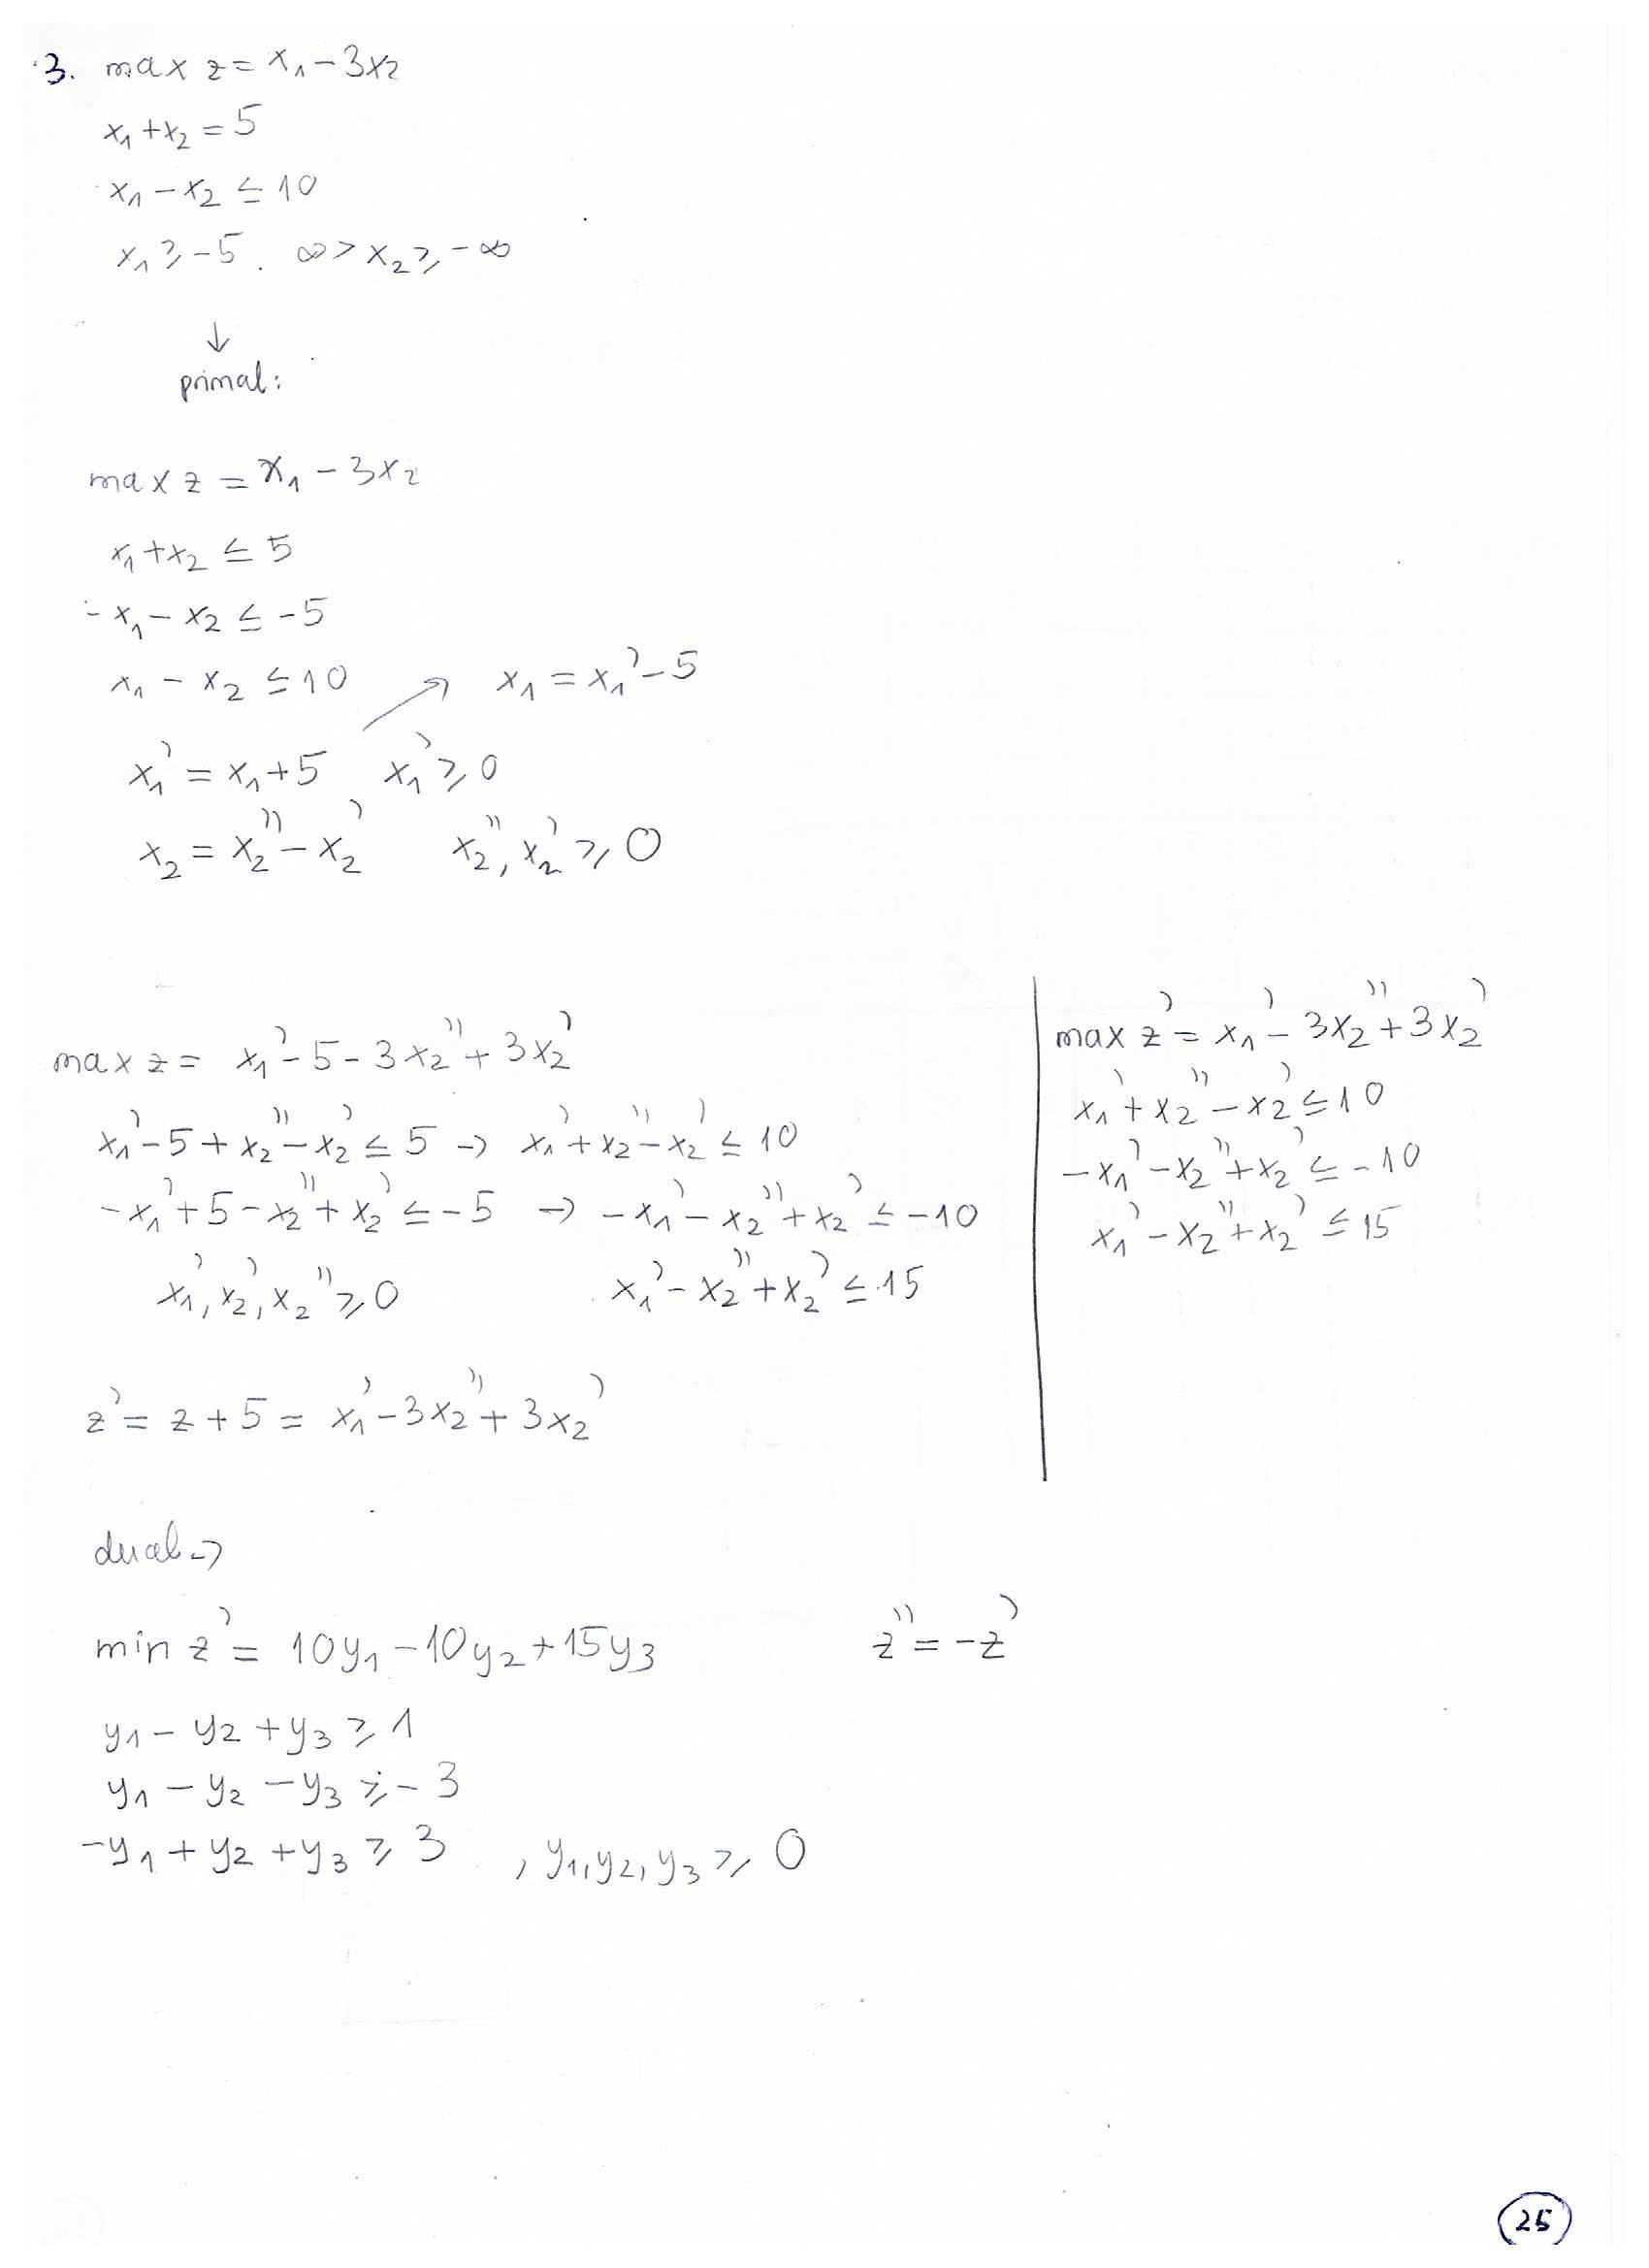 3. max z = x₁ - 3x₂
x₁ + x₂ = 5
x₁ - x₂ ≤ 10
x₁ ≥ -5. ∞ > x₂ ≥ -∞
↓
primal:
max z = x₁ - 3x₂
x₁ + x₂ ≤ 5
- x₁ - x₂ ≤ -5
x₁ - x₂ ≤ 10 ↗ x₁ = x₁' - 5
x₁' = x₁ + 5 x₁' ≥ 0
x₂ = x₂'' - x₂' x₂'', x₂' ≥ 0
max z = x₁' - 5 - 3x₂'' + 3x₂'
x₁' - 5 + x₂'' - x₂' ≤ 5 → x₁' + x₂'' - x₂' ≤ 10
-x₁' + 5 - x₂'' + x₂' ≤ -5 → -x₁' - x₂'' + x₂' ≤ -10
x₁', x₂', x₂'' ≥ 0 x₁' - x₂'' + x₂' ≤ 15
z' = z + 5 = x₁' - 3x₂'' + 3x₂'
max z' = x₁' - 3x₂'' + 3x₂'
x₁' + x₂'' - x₂' ≤ 10
-x₁' - x₂'' + x₂' ≤ -10
x₁' - x₂'' + x₂' ≤ 15
dual →
min z' = 10y₁ - 10y₂ + 15y₃ z'' = -z'
y₁ - y₂ + y₃ ≥ 1
y₁ - y₂ - y₃ ≥ -3
-y₁ + y₂ + y₃ ≥ 3 , y₁, y₂, y₃ ≥ 0
25